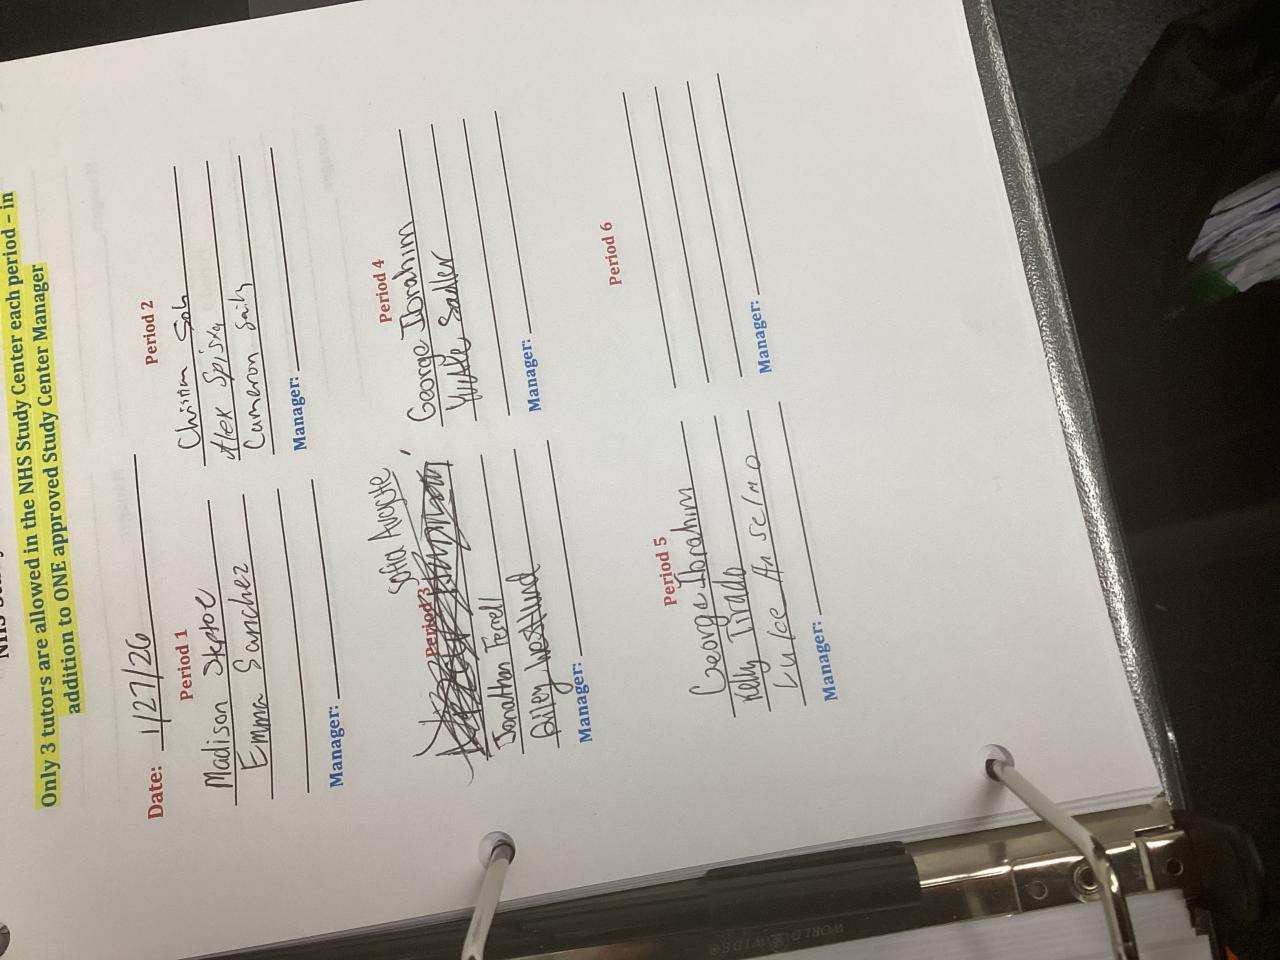 Only 3 tutors are allowed in the NHS Study Center each period – in
addition to ONE approved Study Center Manager
Date: 1/27/26
Period 1
Madison Skpoe
Emma Sanchez
Manager:
Period 2
Alex Spisxq
Cameron Saily
Manager:
Period 3
Sofia Augste
Jonathan Ferrell
Riley Westlund
Manager:
Period 4
George Ibrahim
Sadler
Manager:
Period 5
George Ibrahim
Kelly Tirado
Anselmo
Manager:
Period 6
Manager:
WORLD WIDE